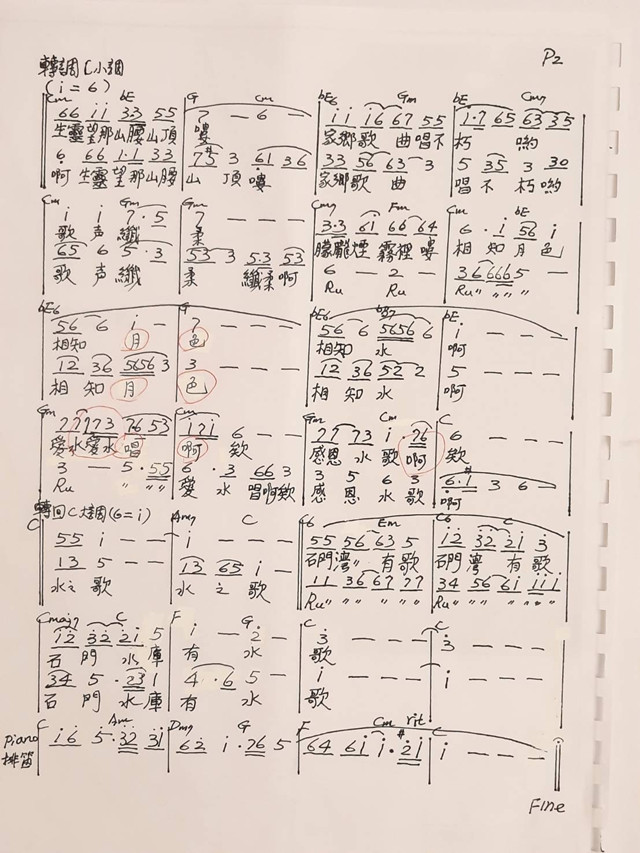 P2
轉調C小調
(i=6)
Cm bE G Cm bE6 Gm bE Cm7
66 ii 33 55 7 - 6 - i i i6 67 55 1·7 65 63 35
生靈望那山腰山頂 嘍 家鄉歌 曲唱不 朽 喲
6 66 1·1 33 7 5 3 61 36 33 56 63 3 5 35 3 30
啊生靈望那山腰 山 頂 嘍 家鄉歌 曲 唱不朽喲
Gm G Cm7 Fm Cm bE
i i 7·5 7 - - - 3·3 61 66 64 6 · i 56 i
歌 声 纖 柔 朦朧煙霧裡嘍 相知月色
65 6 5·3 53 3 5·3 53 6 - 2 - 36 666 5 -
歌 声 纖 柔 纖柔啊 Ru Ru Ru〃〃〃
bE6 G bE6 bB7 bE
56 6 i - 7 - - - 56 6 5656 6 i - - -
相知 月 色 相知 水 啊
12 36 5656 3 3 - - - 12 36 52 2 5 - - -
相 知 月 色 相 知 水 啊
Gm Cm Gm Cm C
77 773 76 53 i7i 6 - - 77 73 i · 76 6 - - -
愛水愛水 唱 啊 欸 感恩 水 歌 啊 欸
3 - 5 · 55 6 · 3 66 3 3 5 6 3 6·1 3 6 -
Ru 〃〃〃 愛 水 唱啊欸 感 恩 水 歌 啊
轉回C大調(6=i)
C Am7 C C6 Em C6 C
55 i - - i - - - 55 56 63 5 12 32 2i 3
石門灣〃 有歌 石門 灣 有 歌
13 5 - - 13 65 i - 11 36 67 77 34 56 6i iii
水之 歌 水 之 歌 Ru〃〃〃〃〃〃 Ru〃〃〃〃〃〃
Cmaj7 C F G C C
i2 32 2i 5 i - 2 - 3 - - - 3 - - -
石 門 水庫 有 水 歌
34 5 · 23 1 4 · 6 5 - i - - - i - - -
石 門 水庫 有 水 歌
C Am Dm7 G F Cm rit C
Piano i6 5·32 3i 62 i·76 5 64 6i i·#2i i - - -
排笛
Fine